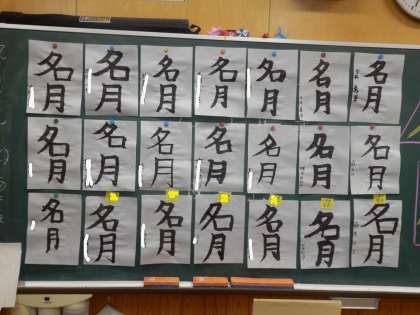 名月 名月 名月 名月 名月 名月 名月
名月 名月 名月 名月 名月 名月 名月
名月 名月 名月 名月 名月 名月 名月